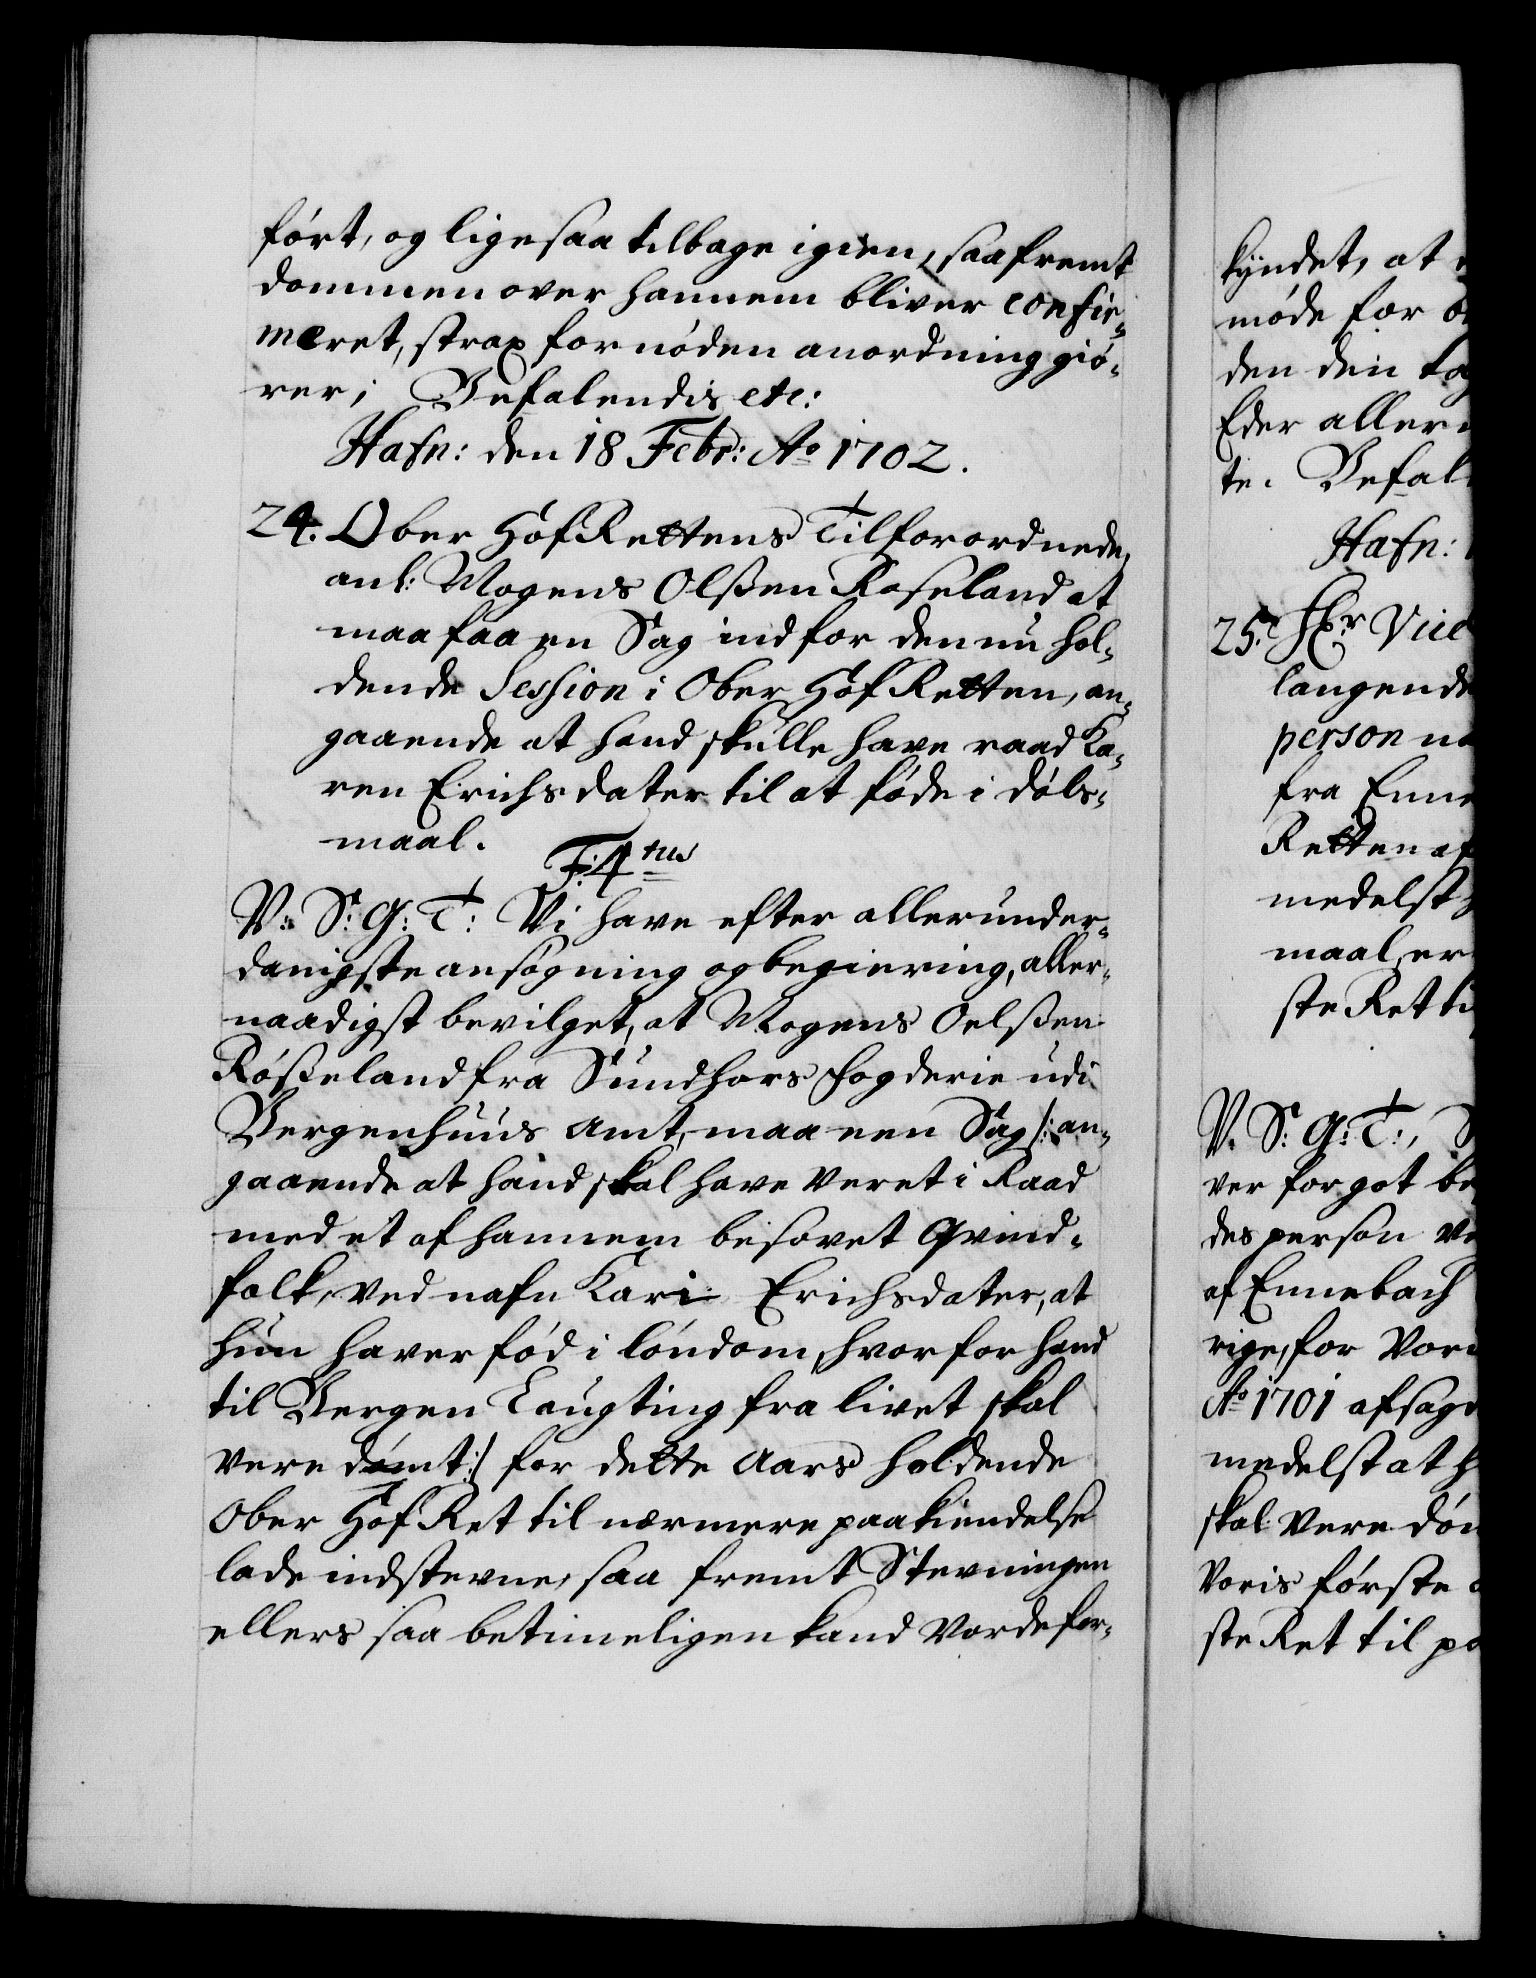 ført, og ligesaa tilbage igien, saafremt
dommen over hannem bliver confir-
meret, strax fornøden anordning giø-
rer; Befalendis etc:
Hafn: den 18 Febr: Ao 1702.
24. Ober HofRettens Tilforordnede,
anl: Mogens Olssen Roseland at
maa faa en Sag ind for den nu hol-
dende Session i Ober Hof Retten, an-
gaaende at hand skulle have raad Ka-
ren Erichsdater til at føde i døls-
maal.
F:4tus
V: S: G: T: Vi have efter allerunder-
danigste ansøgning og begiering, aller-
naadigst bevilget, at Mogens Oelssen
Røsseland fra Sundhors fogderie udi
Bergenhuus Amt, maa een Sag /: an-
gaaende at hand skal have veret i Raad
med et af hannem besovet Qvind-
folk, ved nafn Kari Erichsdater, at
hun haver fød i løndom, hvorfor hand
til Bergen Laugting fra livet skal
vere dømt :/ for dette Aars holdende
Ober Hof Ret til nærmere paakiendelse
lade indstevne, saa fremt Stevningen
ellers saa betimeligen kand vorde for-
kyndet, at
møde for
den den
Eder
te. Befal
Hafn:
25. Hr Vice
langende
person
fra
Retten af
medelst
maal, er
ste Ret
V. S: G: T:,
ver for got
des person
af Ennebach
rige, for
Ao 1701 afsagt
medelst at
skal vere
Voris første
ste Ret til